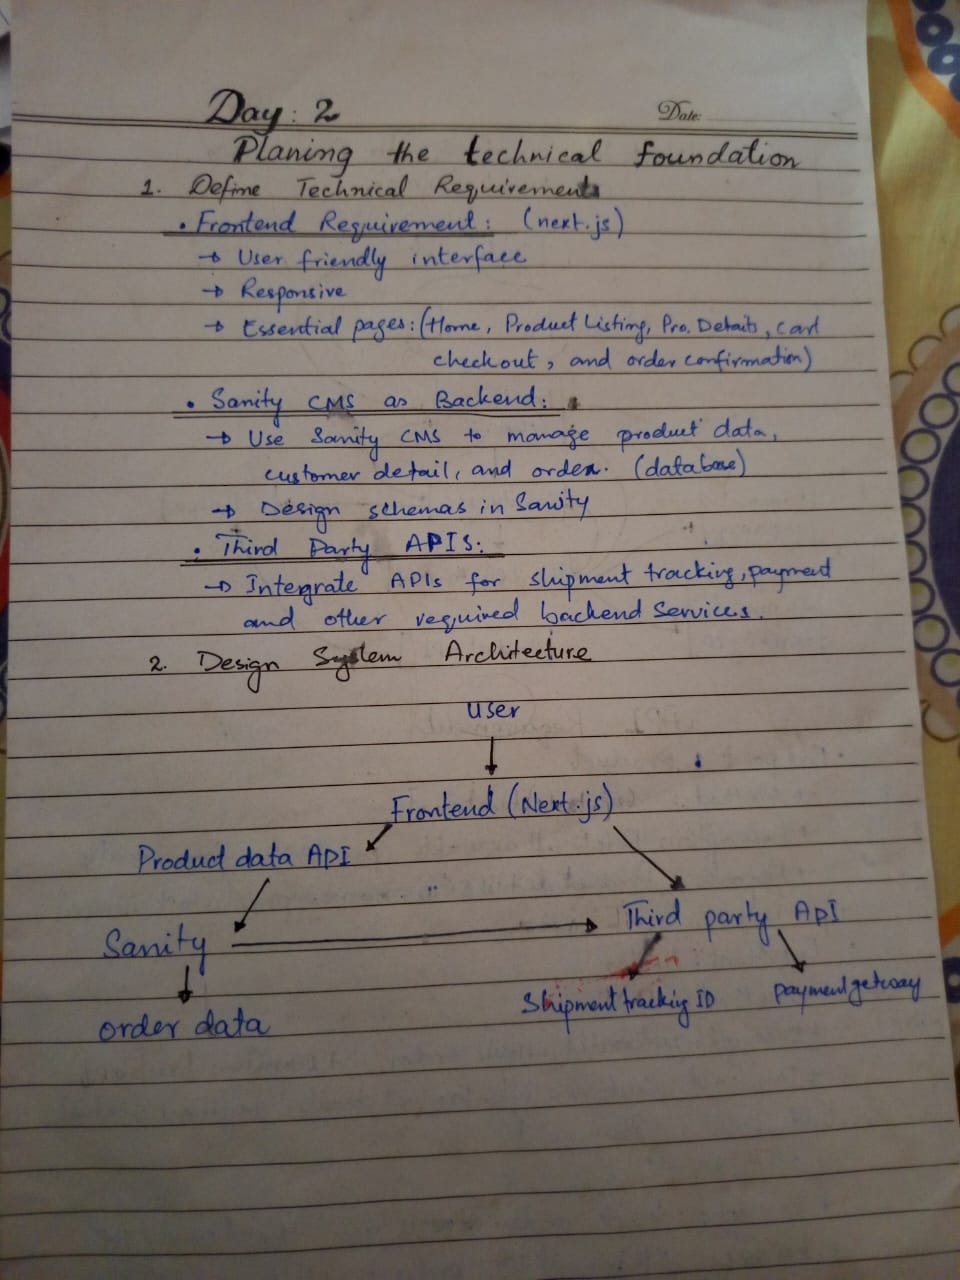 Day: 2
Date:
Planing the technical foundation
1. Define Technical Requirements
• Frontend Requirement: (next.js)
→ User friendly interface
→ Responsive
→ Essential pages: (Home, Product Listing, Pro. Details, cart
checkout, and order confirmation)
• Sanity CMS as Backend:
→ Use Sanity CMS to manage product data,
customer detail, and order. (database)
→ Design schemas in Sanity
• Third Party APIS:
→ Intergrate APIs for shipment tracking, payment
and other required backend services.
2. Design System Architecture
user
Frontend (Next.js)
Product data API
Third party API
Sanity
Shipment tracking ID
payment getway
order data